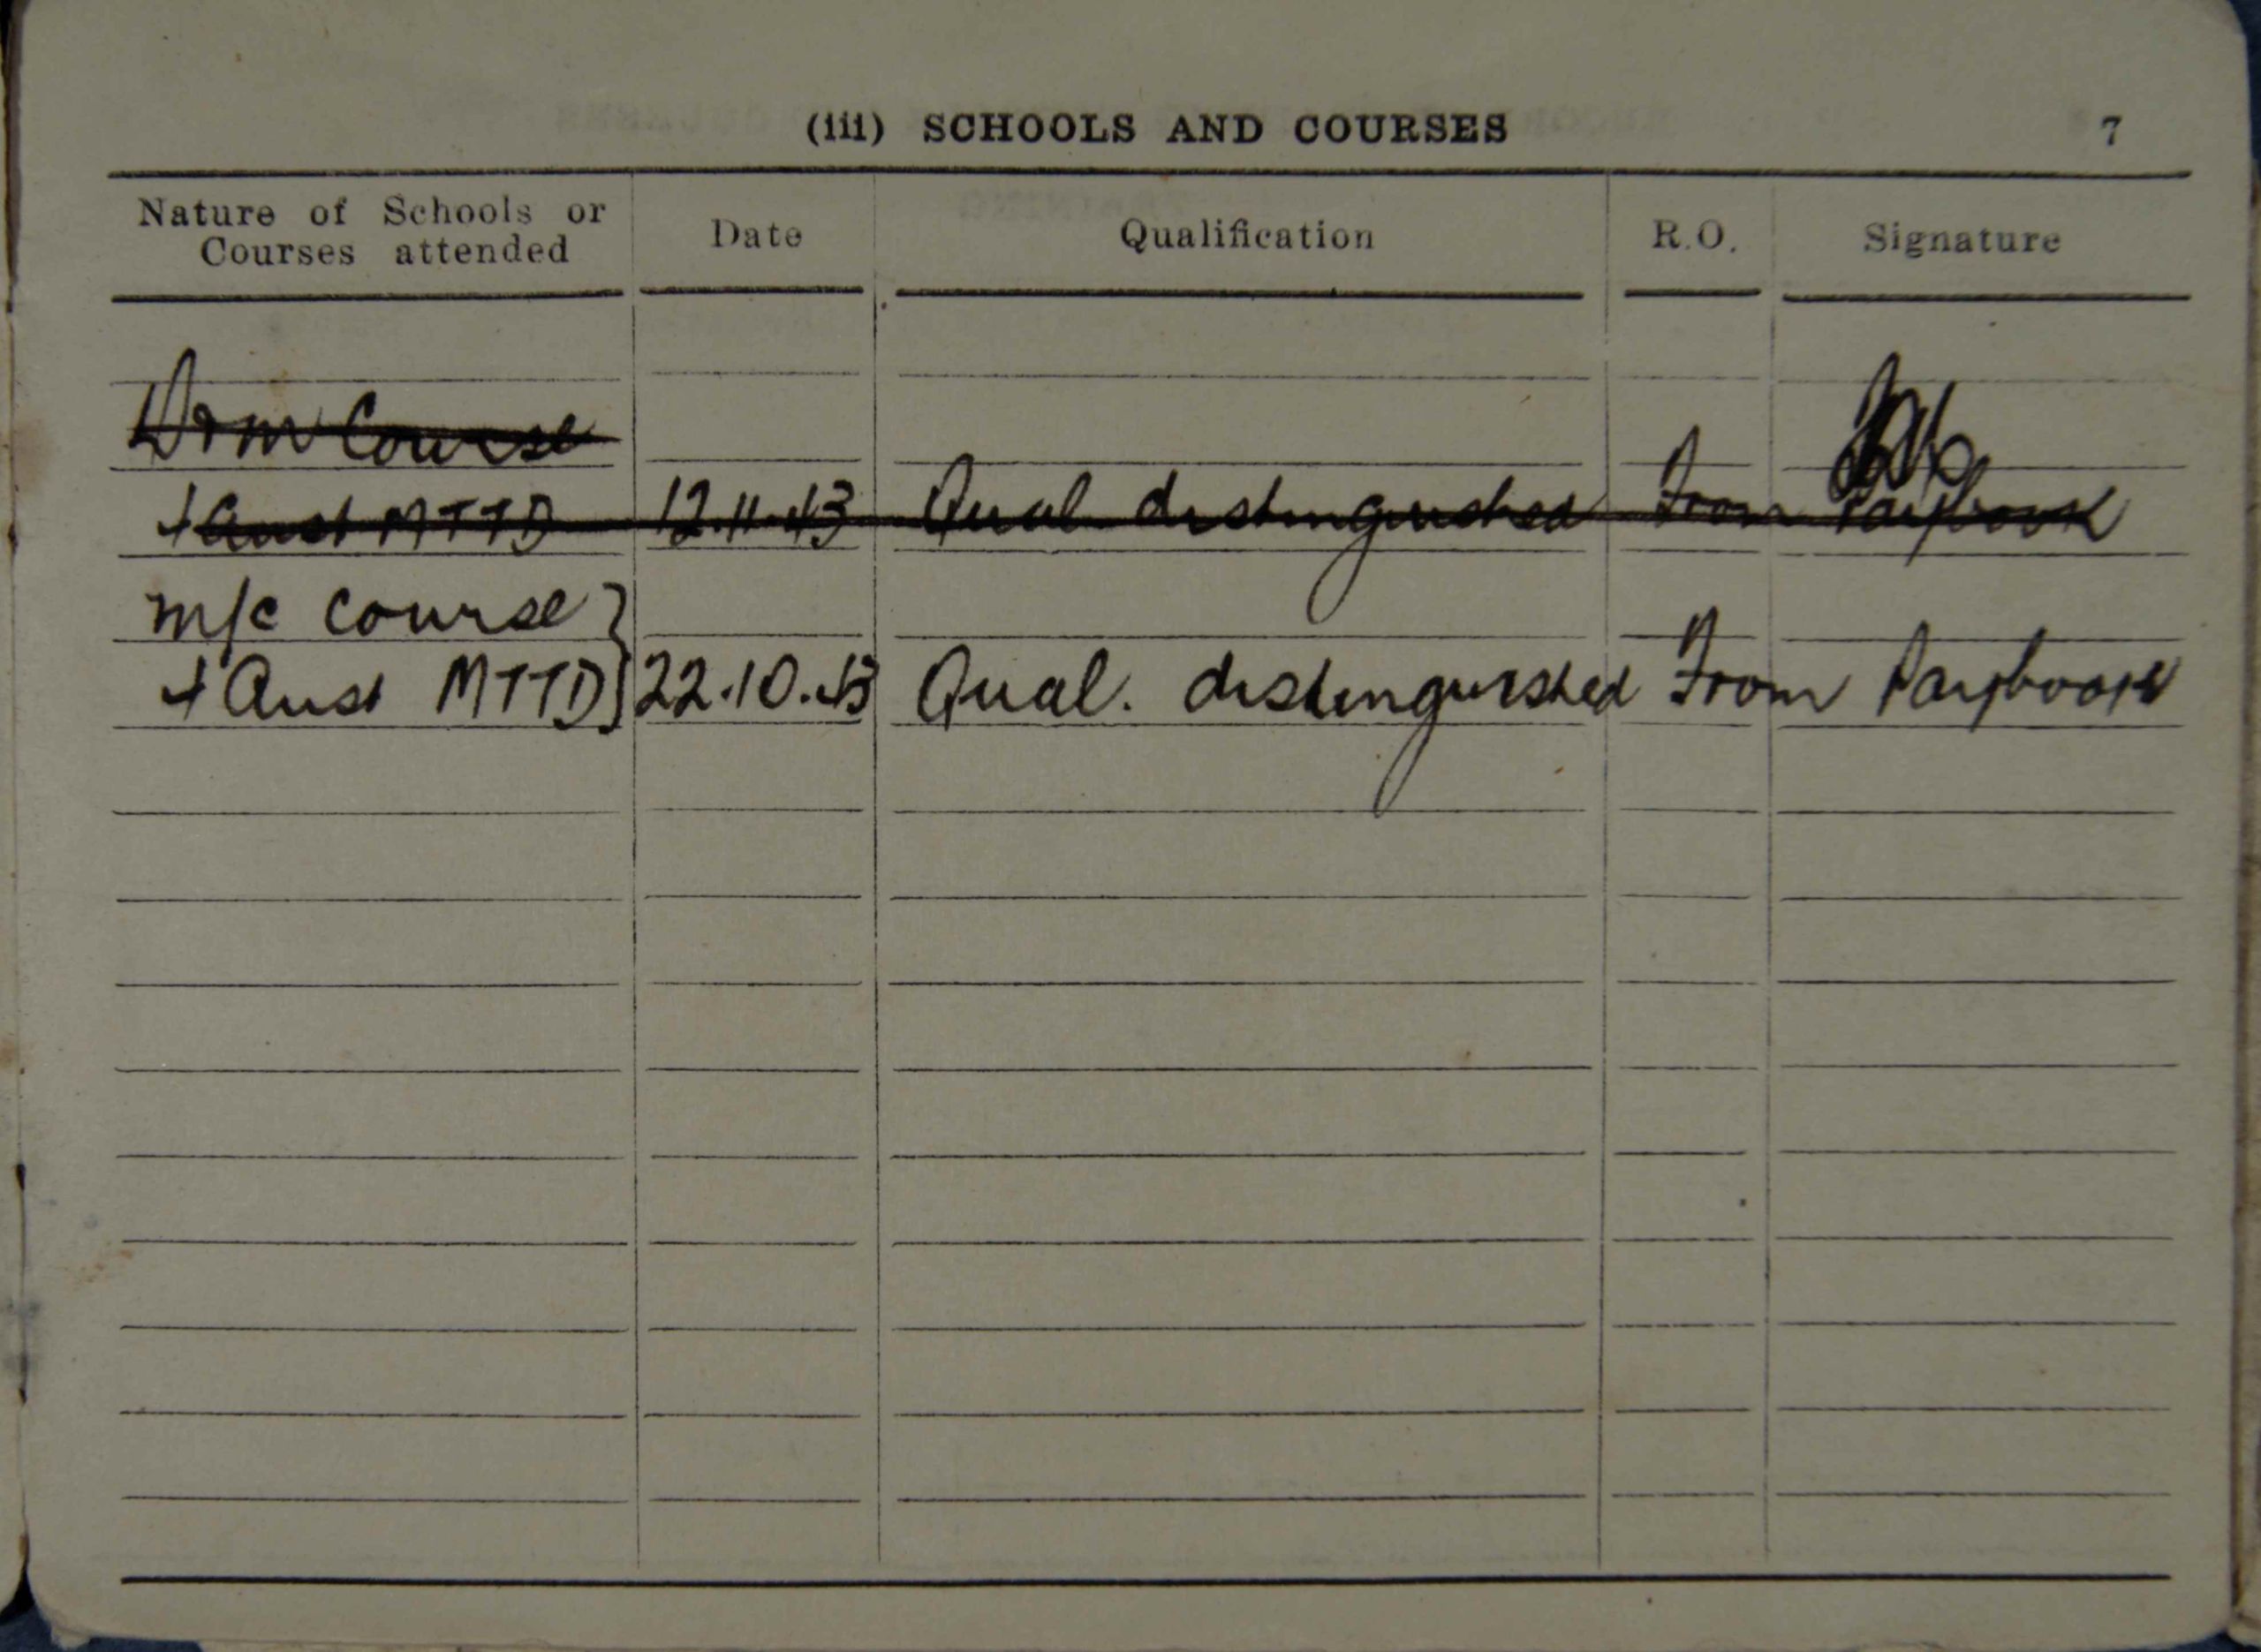 (iii) SCHOOLS AND COURSES 7
Nature of Schools or
Courses attended Date Qualification R.O. Signature
D & M Course
+ Aust MTTD 12.11.43 Qual distinguished From Paybook
M/c course }
+ Aust MTTD } 22.10.43 Qual. distinguished From Paybook